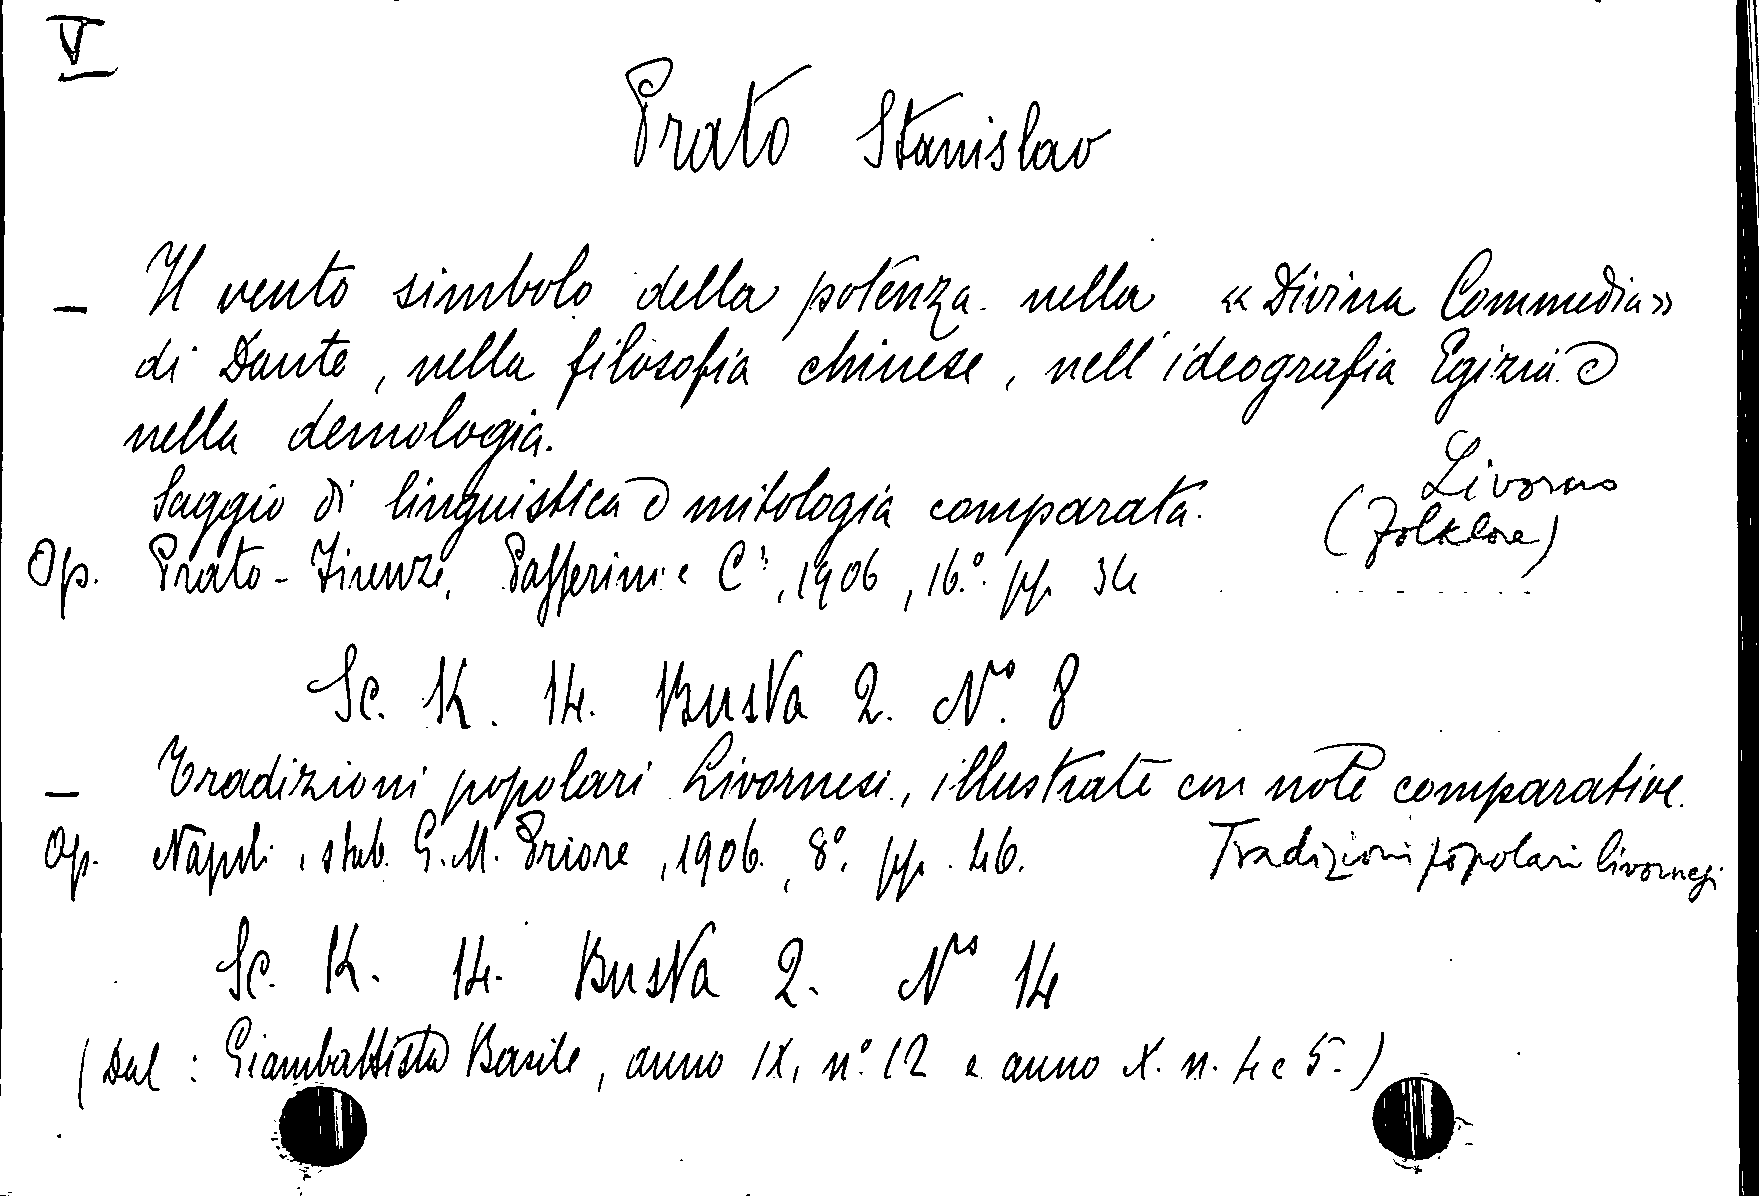 V
Prato Stanislao
– Il vento simbolo della potenza nella «Divina Commedia»
di Dante, nella filosofia chinese, nell'ideografia Egizia e
nella demologia.
Saggio di linguistica e mitologia comparata.
Livorno
(Folklore)
Op. Prato - Firenze, Passerini e C.i, 1906, 16.° pp. 34
Sc. K. 14. Busta 2. N.ro 8
– Tradizioni popolari Livornesi, illustrate con note comparative.
Op. Napoli, stab. G. M. Priore, 1906, 8°. pp. 46.
Tradizioni popolari livornesi
Sc. K. 14. Busta 2. Nro 14
(Dal: Giambattista Basile, anno IX, n.° 12 e anno X. n. 4 e 5.)